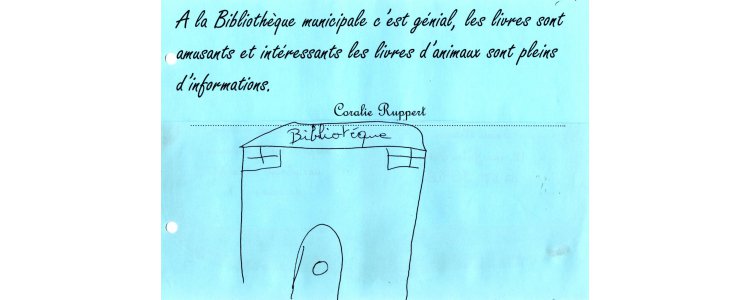 A la Bibliothèque municipale c'est génial, les livres sont
amusants et intéressants les livres d'animaux sont pleins
d'informations.
Coralie Ruppert
Bibliotéque